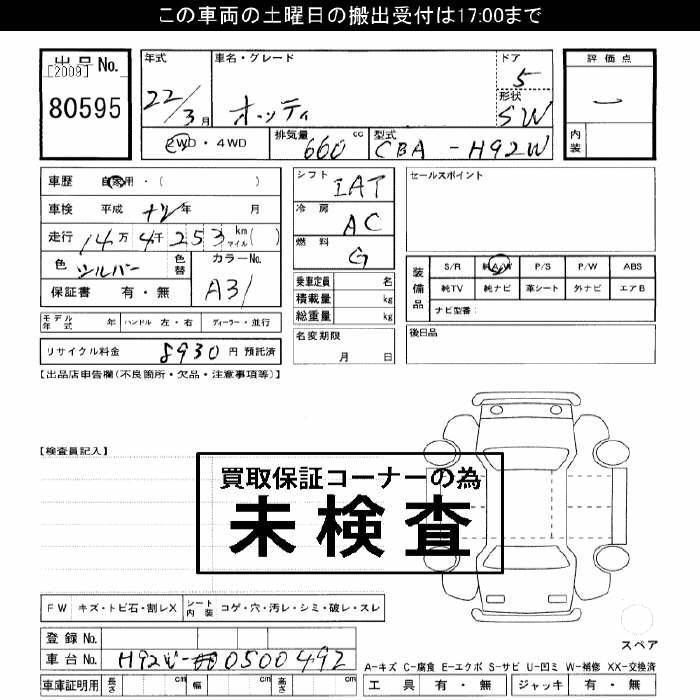 この車両の土曜日の搬出受付は17:00まで
出品 No.
[2009]
80595
年式
22/3月
車名・グレード
オッティ
ドア
5
形状
SW
2WD・4WD
排気量 660 cc
型式 CBA-H92W
評価点
一
内装
車歴 自家用・( )
車検 平成 年 月
走行 14万4千253 km マイル( )
色 シルバー
色替
カラーNo. A31
保証書 有・無
シフト IAT
冷房 AC
燃料 G
乗車定員 名
積載量 kg
総重量 kg
名変期限
月 日
セールスポイント
装備品
S/R 純A/W P/S P/W ABS
純TV 純ナビ 革シート 外ナビ エアB
ナビ型番:
後日品
モデル年式 年 ハンドル 左・右 ディーラー・並行
リサイクル料金 8930 円 預託済
【出品店申告欄(不良箇所・欠品・注意事項等)】
【検査員記入】
買取保証コーナーの為
未検査
FW キズ・トビ石・割レX シート内装 コゲ・穴・汚レ・シミ・破レ・スレ
登録 No.
車台 No. H92W-0500492
車庫証明用 長さ cm 幅 cm 高さ cm
スペア
A-キズ C-腐食 E-エクボ S-サビ U-凹ミ W-補修 XX-交換済
工具 有・無 ジャッキ 有・無